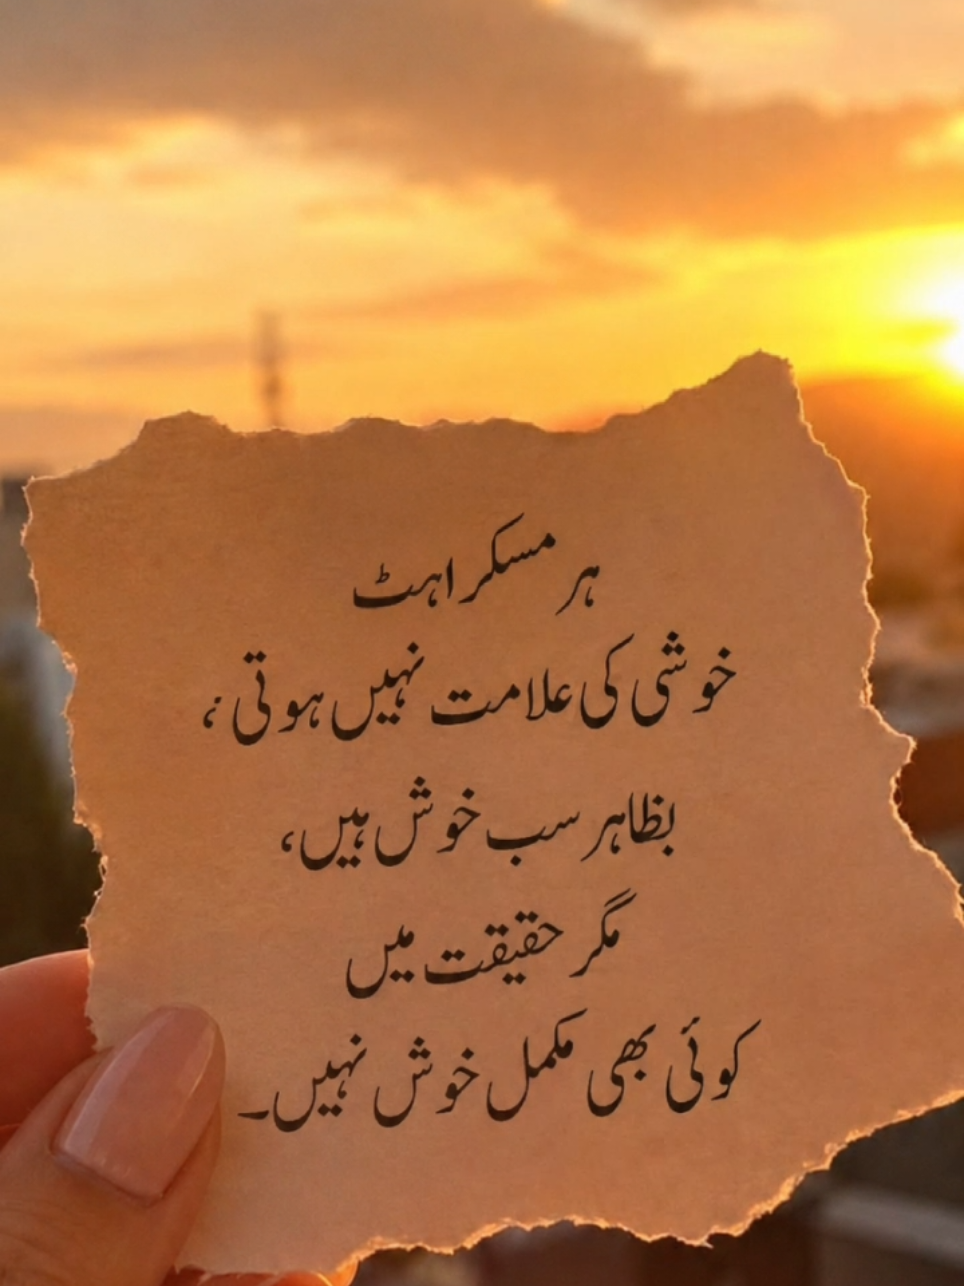 ہر مسکراہٹ
خوشی کی علامت نہیں ہوتی؛
بظاہر سب خوش ہیں،
مگر حقیقت میں
کوئی بھی مکمل خوش نہیں۔